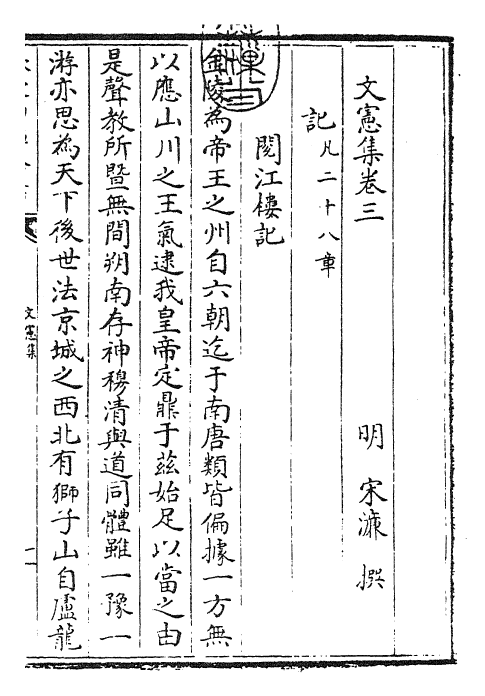 文憲集卷三
明 宋濂 撰
記凡二十八章
閱江樓記
金陵為帝王之州自六朝迄于南唐類皆偏據一方無
以應山川之王氣逮我皇帝定鼎于茲始足以當之由
是聲教所暨無間朔南存神穆清與道同體雖一豫一
游亦思為天下後世法京城之西北有獅子山自盧龍
文憲集